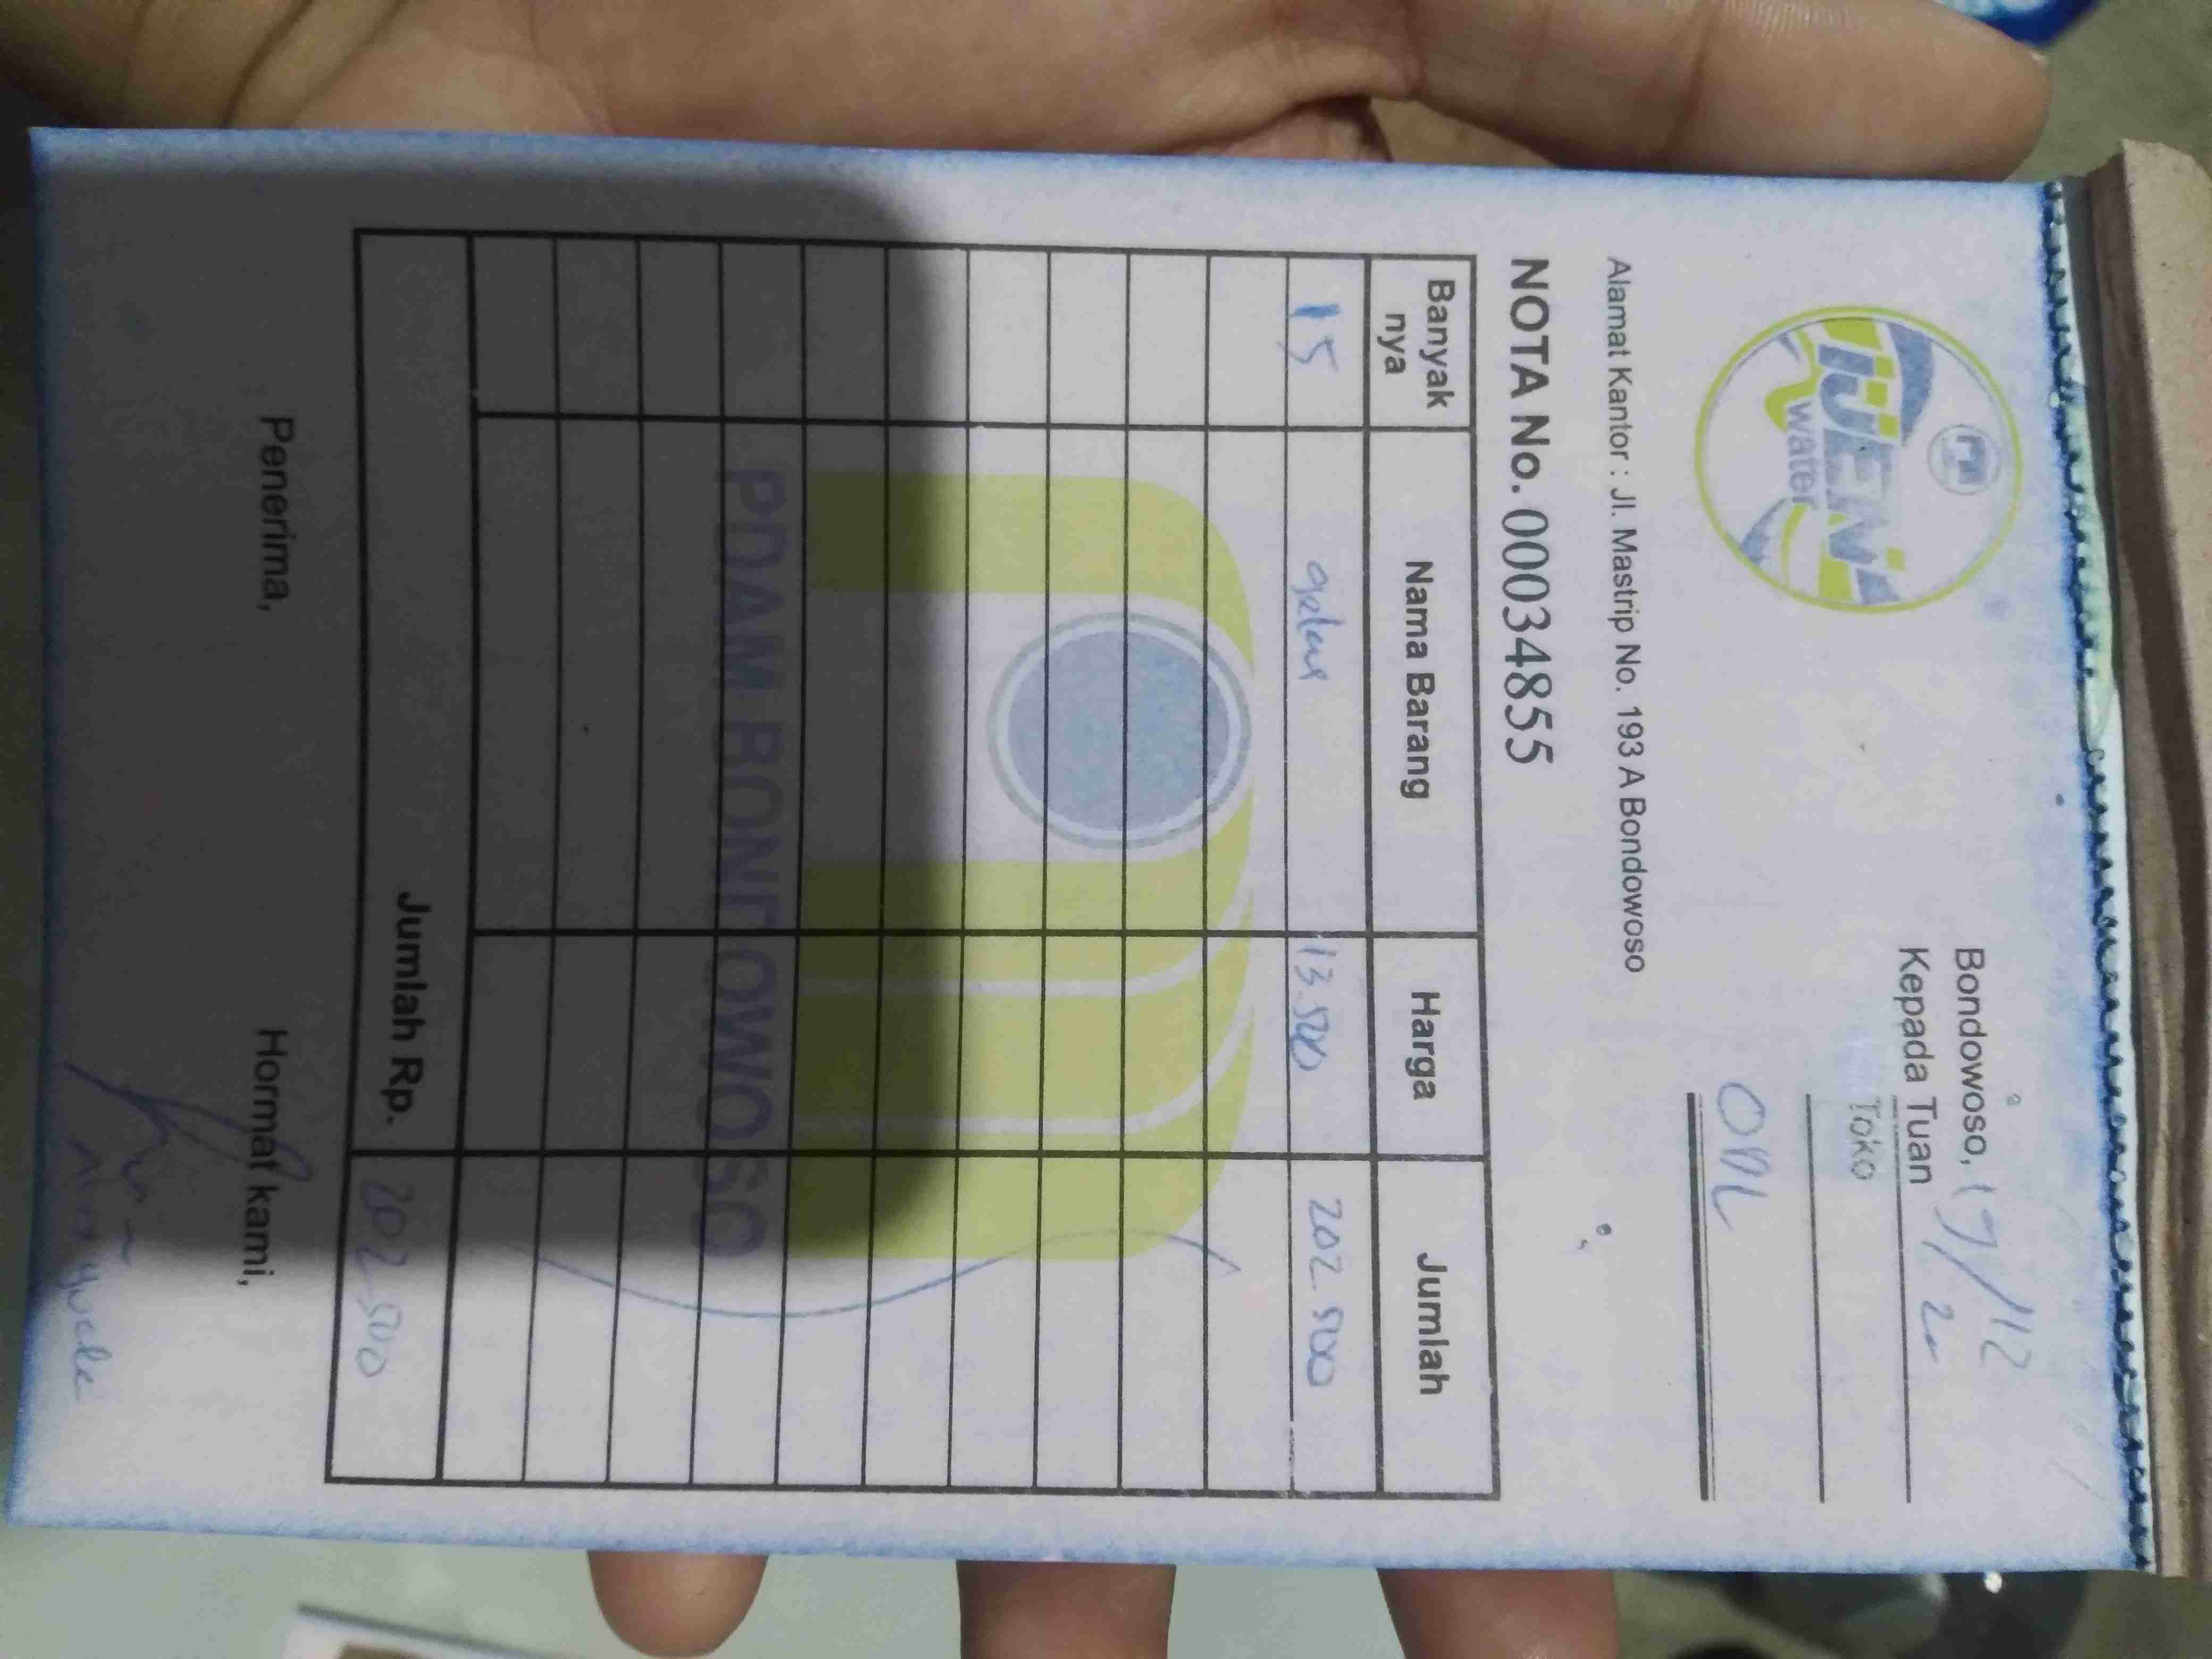 IJEN
water
Bondowoso, 17/12
Kepada Tuan
Toko
Alamat Kantor : Jl. Mastrip No. 193 A Bondowoso
NOTA No. 00034855
Banyak nya Nama Barang Harga Jumlah
15 gelas 13.500 202.500
PDAM BONDOWOSO
Jumlah Rp. 202.500
Penerima, Hormat kami,